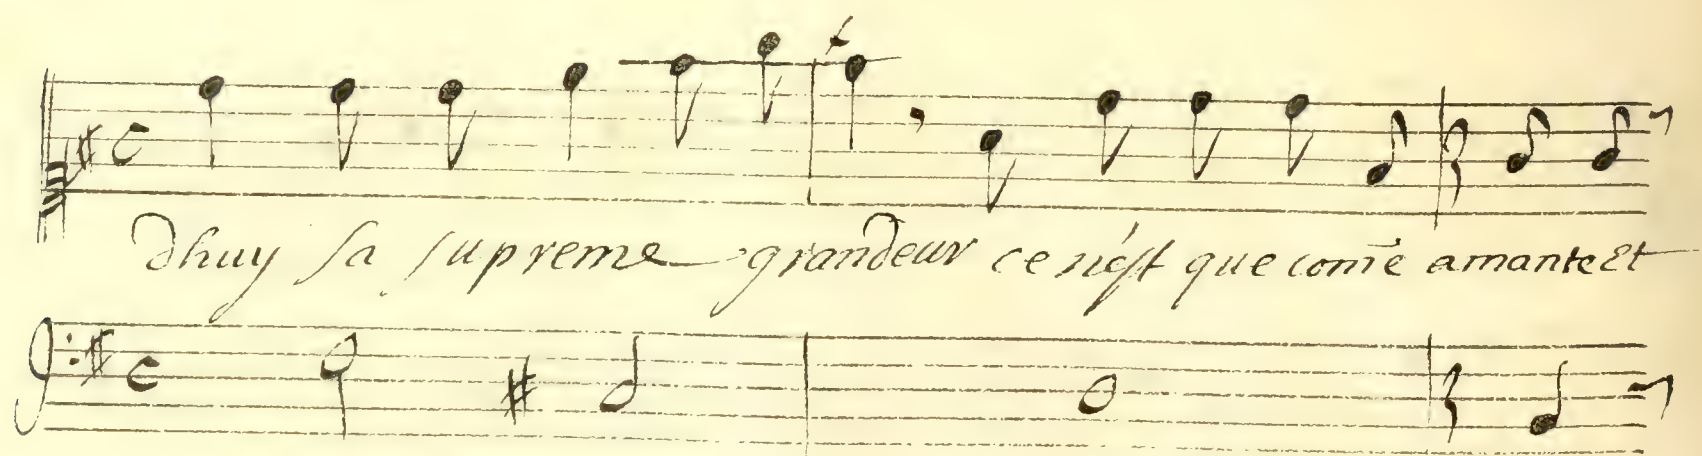 dhuy sa supreme grandeur ce n'est que com̄e amante Et